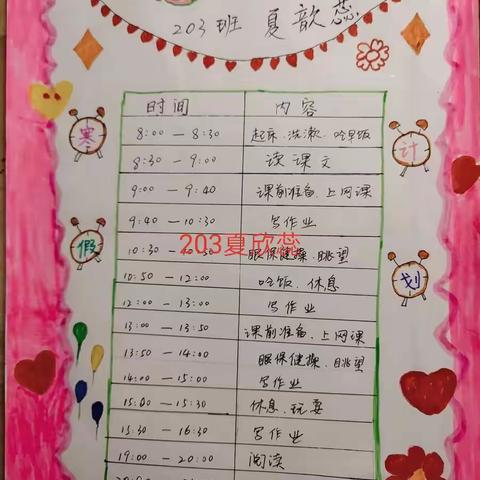 203班 夏歆蕊
寒
假
计
划
时间 内容
8:00 — 8:30 起床、洗漱、吃早饭
8:30 — 9:00 读课文
9:00 — 9:40 课前准备、上网课
9:40 — 10:30 写作业
10:30 — 10:50 眼保健操、眺望
203夏欣蕊
10:50 — 12:00 吃饭、休息
12:00 — 13:00 写作业
13:00 — 13:50 课前准备、上网课
13:50 — 14:00 眼保健操、眺望
14:00 — 15:00 写作业
15:00 — 15:30 休息、玩耍
15:30 — 16:30 写作业
19:00 — 20:00 阅读